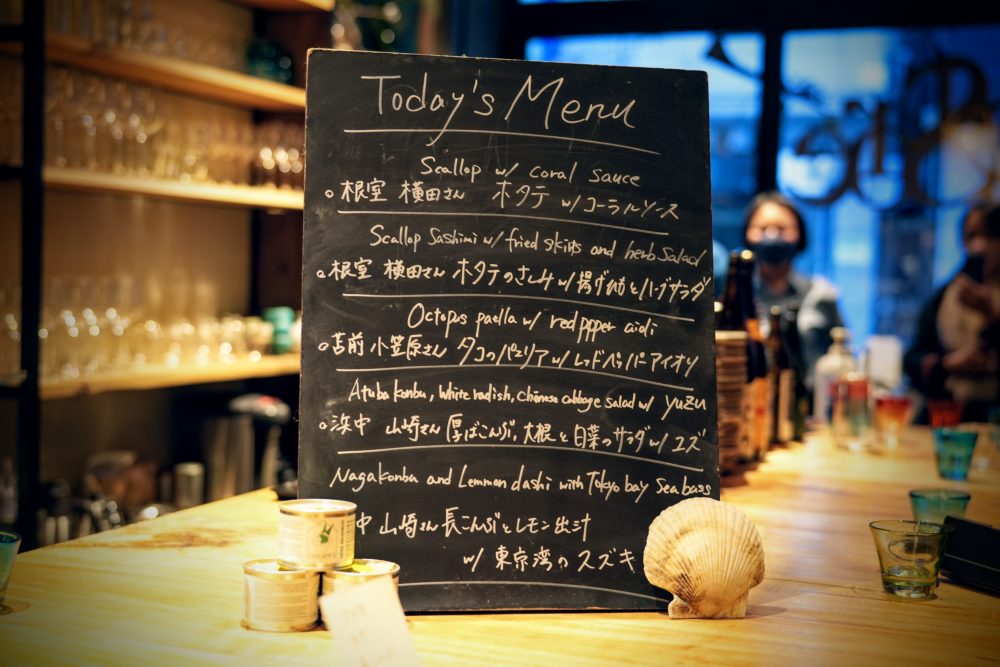 Today's Menu
Scallop w/ coral sauce
○根室 横田さん ホタテ w/ コーラルソース
Scallop Sashimi w/ fried skirts and herb Salad
○根室 横田さん ホタテのさしみ w/ 揚げひもとハーブサラダ
Octopus paella w/ red ppper aioli
○苫前 小笠原さん タコのパエリア w/ レッドペッパーアイオリ
Atuba konbu, White radish, Chinese cabbage salad w/ yuzu
○浜中 山崎さん 厚ばこんぶ、大根と白菜のサラダ w/ ユズ
Nagakonbu and Lemmon dashi with Tokyo bay Sea bass
中 山崎さん 長こんぶとレモン出汁
w/ 東京湾のスズキ
The